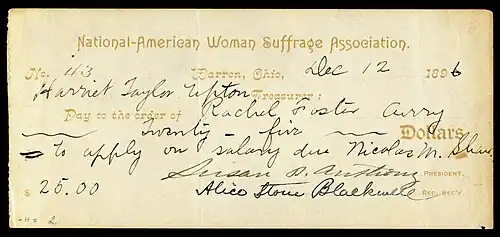 National-American Woman Suffrage Association.
No. 113 Warren, Ohio, Dec 12 1896
Harriet Taylor Upton Treasurer:
Pay to the order of Rachel Foster Avery
Twenty-five Dollars
to apply on salary due Nicolas M. Shaw.
Susan B. Anthony PRESIDENT.
$ 25.00 Alice Stone Blackwell REC. SEC'Y.